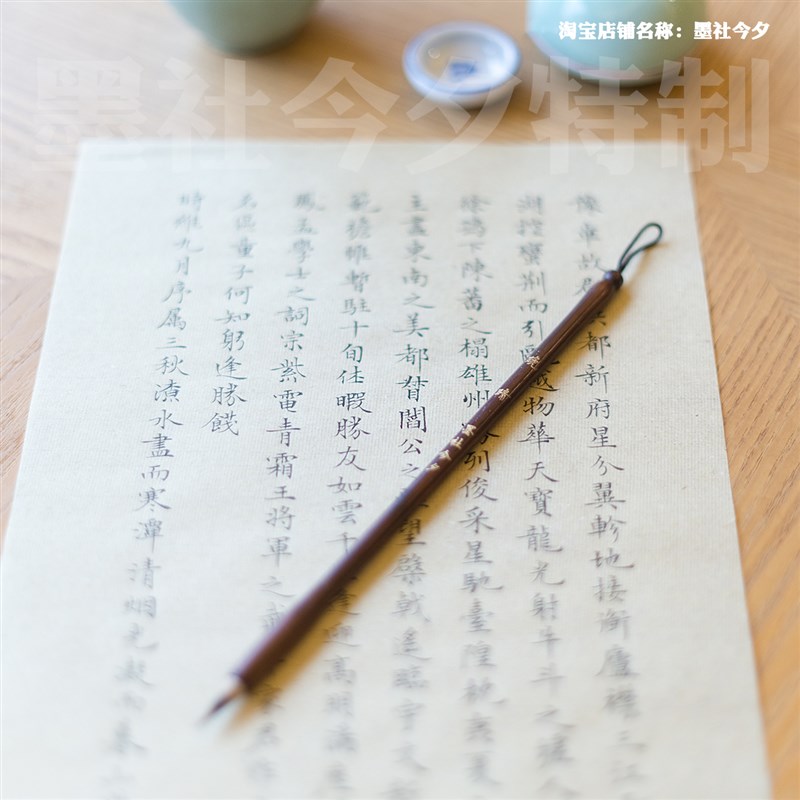 淘宝店铺名称：墨社今夕
墨社今夕特制
豫章故都新府星分翼軫地接衡廬襟三江
湖控蠻荊而引甌越物華天寶龍光射牛斗之墟
徐孺下陳蕃之榻雄州列俊采星馳臺隍枕夷夏
主盡東南之美都督閻公之望棨戟遙臨宇文新
範襜帷暫駐十旬休暇勝友如雲千逢迎高朋滿座
鳳孟學士之詞宗紫電青霜王將軍之武家君作
名區童子何知躬逢勝餞
時維九月序屬三秋潦水盡而寒潭清烟光凝而暮山